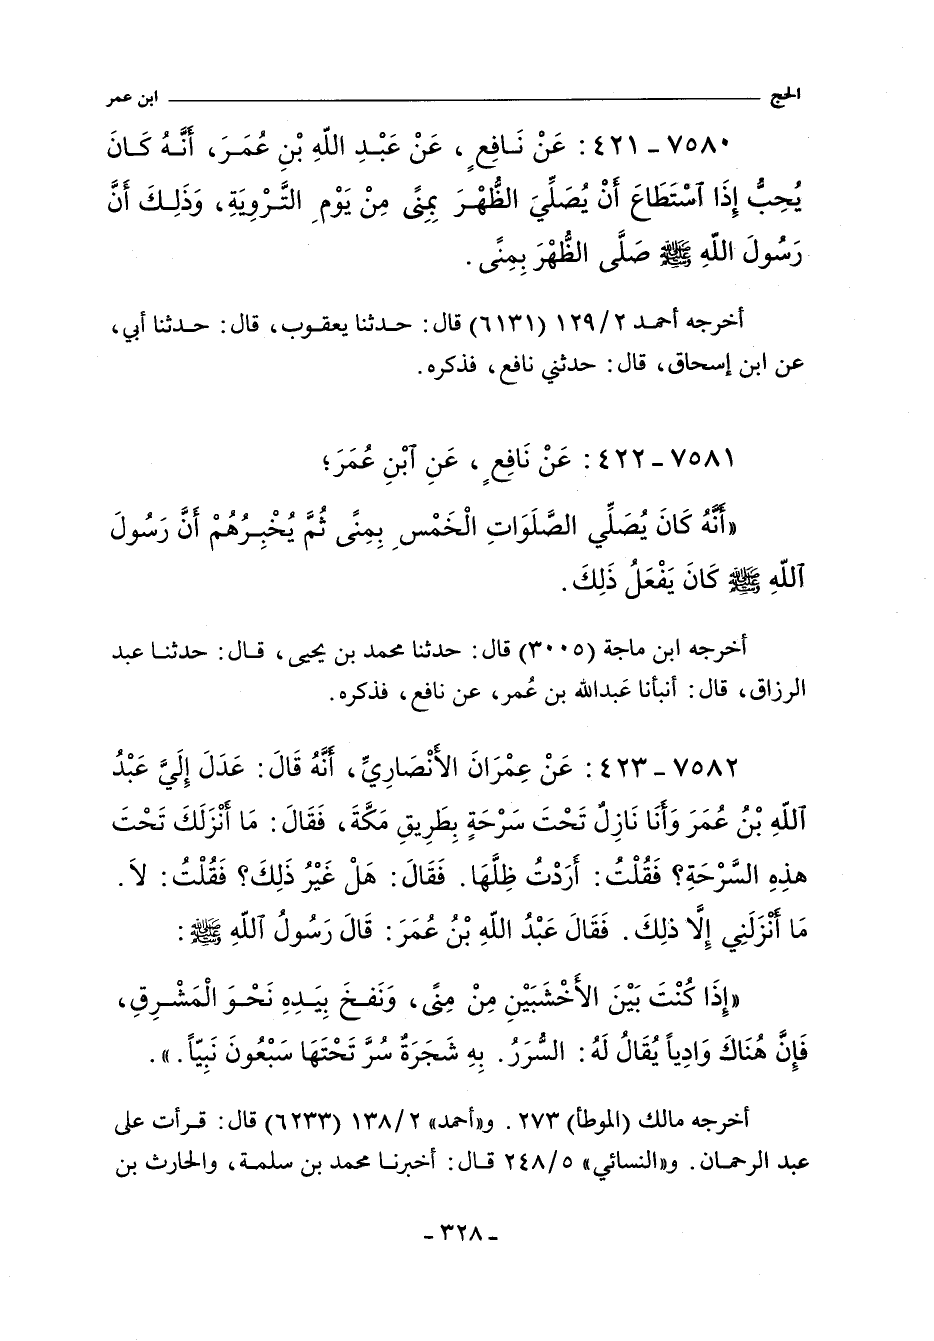 الحج ابن عمر
٧٥٨٠ - ٤٢١ : عَنْ نَافِعٍ ، عَنْ عَبْدِ اللّهِ بْنِ عُمَرَ، أَنَّهُ كَانَ
يُحِبُّ إِذَا ٱسْتَطَاعَ أَنْ يُصَلِّيَ الظُّهْرَ بِمِنًى مِنْ يَوْمِ التَّرْوِيَةِ، وَذَلِكَ أَنَّ
رَسُولَ اللّهِ ﷺ صَلَّى الظُّهْرَ بِمِنًى .
أخرجه أحمد ١٢٩/٢ (٦١٣١) قال: حدثنا يعقوب، قال: حدثنا أبي،
عن ابن إسحاق، قال: حدثني نافع، فذكره.
٧٥٨١ - ٤٢٢ : عَنْ نَافِعٍ ، عَنِ ٱبْنِ عُمَرَ؛
«أَنَّهُ كَانَ يُصَلِّي الصَّلَوَاتِ الْخَمْسِ بِمِنًى ثُمَّ يُخْبِرُهُمْ أَنَّ رَسُولَ
ٱللّهِ ﷺ كَانَ يَفْعَلُ ذَلِكَ.
أخرجه ابن ماجة (٣٠٠٥) قال: حدثنا محمد بن يحيى، قال: حدثنا عبد
الرزاق، قال: أنبأنا عَبدالله بن عُمر، عن نافع، فذكره.
٧٥٨٢ - ٤٢٣ : عَنْ عِمْرَانَ الأَنْصَارِيِّ، أَنَّهُ قَالَ: عَدَلَ إِلَيَّ عَبْدُ
ٱللّهِ بْنُ عُمَرَ وَأَنَا نَازِلٌ تَحْتَ سَرْحَةٍ بِطَرِيقِ مَكَّةَ، فَقَالَ: مَا أَنْزَلَكَ تَحْتَ
هذِهِ السَّرْحَةِ؟ فَقُلْتُ: أَرَدْتُ ظِلَّهَا. فَقَالَ: هَلْ غَيْرُ ذَلِكَ؟ فَقُلْتُ: لاَ.
مَا أَنْزَلَنِي إِلَّا ذلِكَ. فَقَالَ عَبْدُ اللّهِ بْنُ عُمَرَ: قَالَ رَسُولُ ٱللّهِ ﷺ:
«إِذَا كُنْتَ بَيْنَ الأَخْشَبَيْنِ مِنْ مِنًى، وَنَفَخَ بِيَدِهِ نَحْوَ الْمَشْرِقِ،
فَإِنَّ هُنَاكَ وَادِياً يُقَالُ لَهُ: السُّرَرُ. بِهِ شَجَرَةٌ سُرَّ تَحْتَهَا سَبْعُونَ نَبِيّاً.».
أخرجه مالك (الموطأ) ٢٧٣. و«أحمد» ١٣٨/٢ (٦٢٣٣) قال: قرأت على
عبد الرحمان. و«النسائي» ٢٤٨/٥ قال: أخبرنا محمد بن سلمة، والحارث بن
- ٣٢٨ -